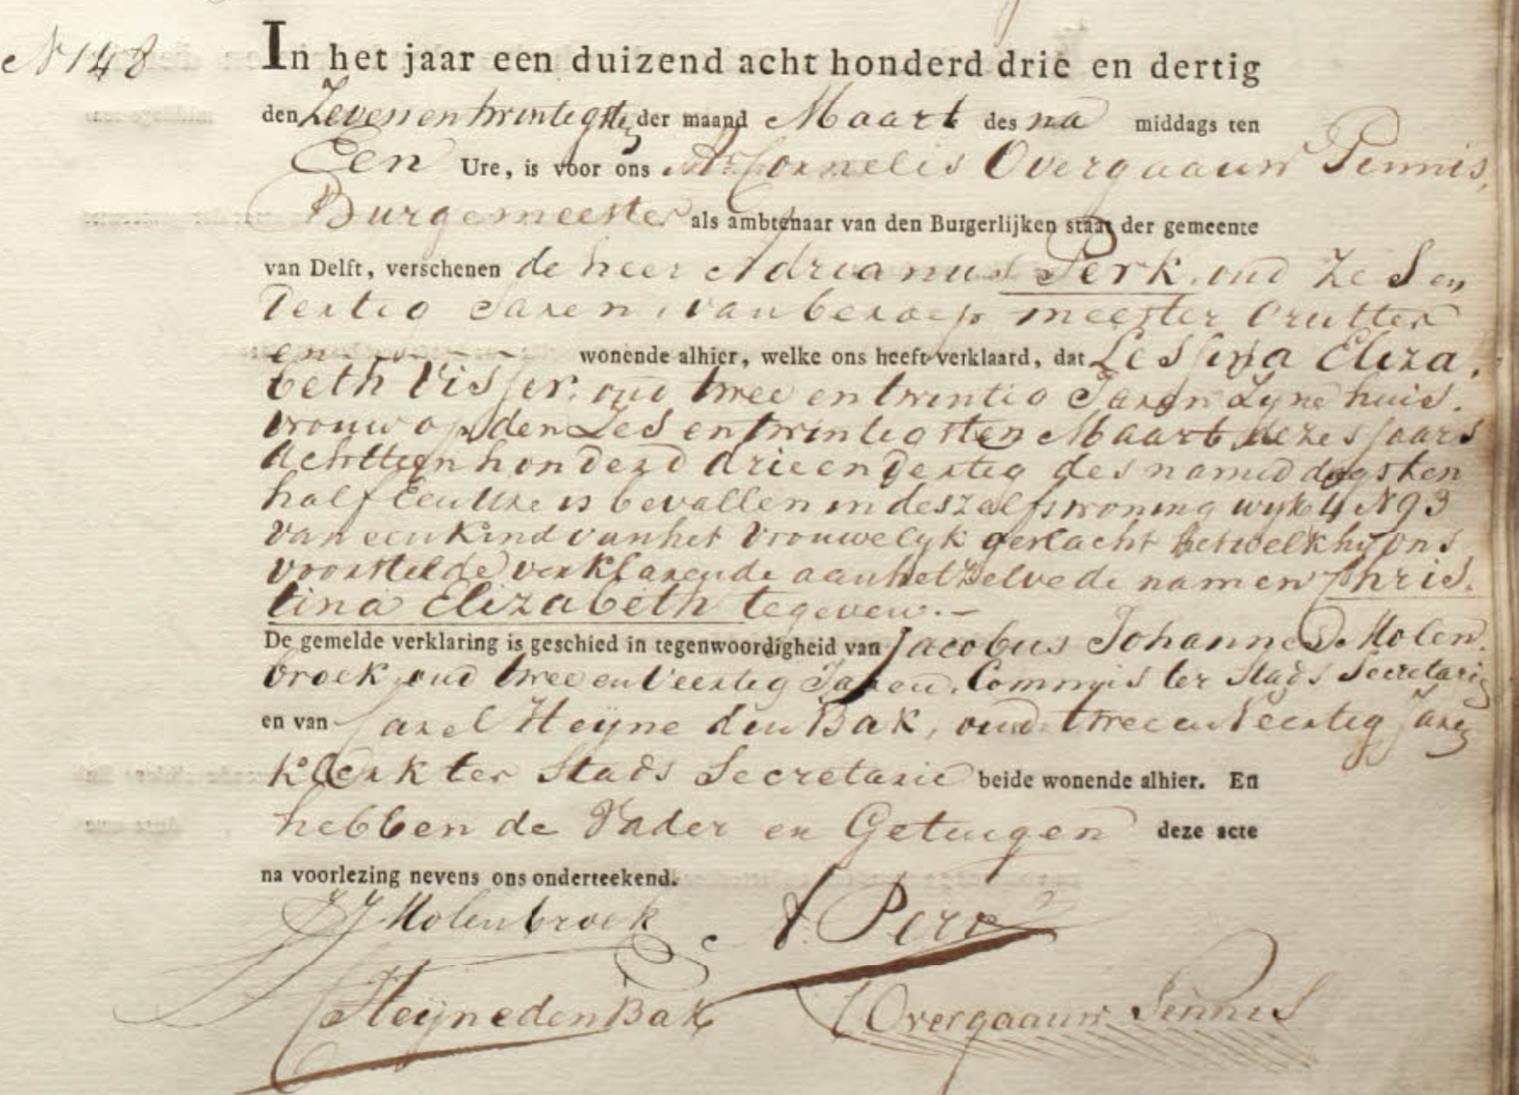 N 148
In het jaar een duizend acht honderd drie en dertig
den Zevenentwintigste der maand Maart des na middags ten
Een Ure, is voor ons Mr Cornelis Overgaauw Pennis,
Burgemeester als ambtenaar van den Burgerlijken staat der gemeente
van Delft, verschenen de heer Adrianus Perk, oud Zes en
Dertig Jaren, van beroep meester
wonende alhier, welke ons heeft verklaard, dat Lessina Eliza,
beth Visser, oud twee en twintig Jaren Zyne huis.
vrouw op den Zes entwintigsten Maart dezes jaars
Achttienhonderd drieendertig des namiddags ten
half Een Ure is bevallen in deszelfs woning wyk 4 N 93
van een Kind van het Vrouwelyk geslacht hetwelk hy ons
voorstelde verklarende aan hetzelve de namen Chris.
tina Elizabeth te geven.-
De gemelde verklaring is geschied in tegenwoordigheid van Jacobus Johannes Molen
broek, oud twee en Veertig Jaren, Commis ter Stads Secretarie
en van Carel Heijne den Bak, oud twee en Veertig Jaren
Klerk ter Stads Secretarie beide wonende alhier. En
hebben de Vader en Getuigen deze acte
na voorlezing nevens ons onderteekend.
JJ Molenbroek A. Perk
CHeijnedenBak C Overgaauw Pennis